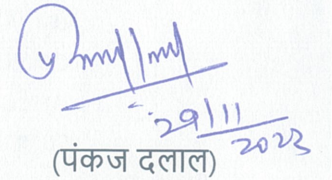 29/11
2023
(पंकज दलाल)